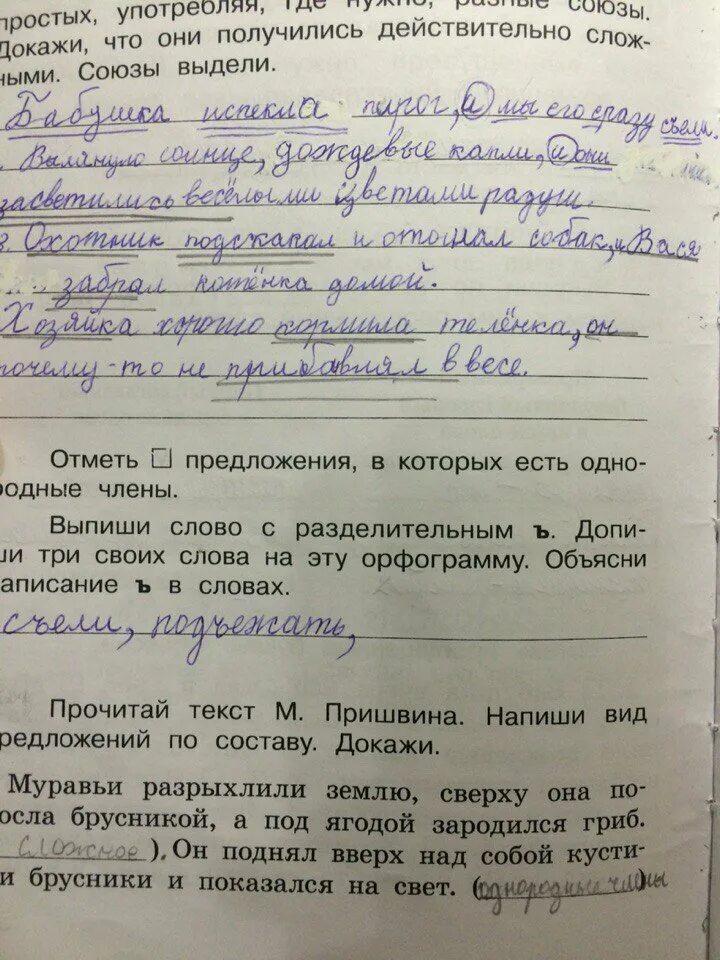 простых, употребляя, где нужно, разные союзы.
Докажи, что они получились действительно слож-
ными. Союзы выдели.
Бабушка испекла пирог, а мы его сразу съели.
. Выглянуло солнце, дождевые капли, и они
засветились весёлыми цветами радуги.
3. Охотник подскакал и отогнал собак, и Вася
забрал котёнка домой.
Хозяйка хорошо кормила телёнка, он
почему-то не прибавлял в весе.
Отметь предложения, в которых есть одно-
родные члены.
Выпиши слово с разделительным ъ. Допи-
ши три своих слова на эту орфограмму. Объясни
написание ъ в словах.
съели, подъежать,
Прочитай текст М. Пришвина. Напиши вид
предложений по составу. Докажи.
Муравьи разрыхлили землю, сверху она по-
росла брусникой, а под ягодой зародился гриб.
сложное ). Он поднял вверх над собой кусти-
ки брусники и показался на свет. (однородные члены